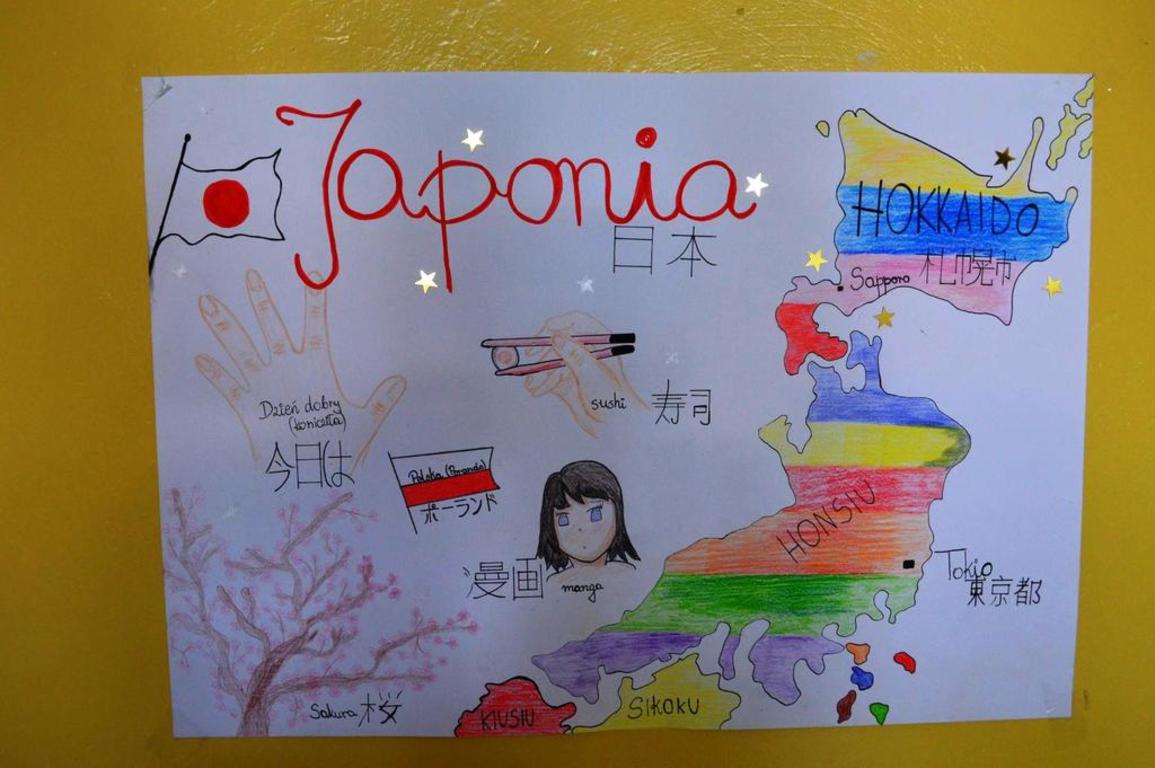 Japonia
日本
HOKKAIDO
Sapporo 札幌市
Dzień dobry
(koniczła)
今日は
sushi 寿司
Polska (Poranda)
ポーランド
漫画 manga
HONSIU
Tokio
東京都
Sakura 桜
KIUSIU
SIKOKU